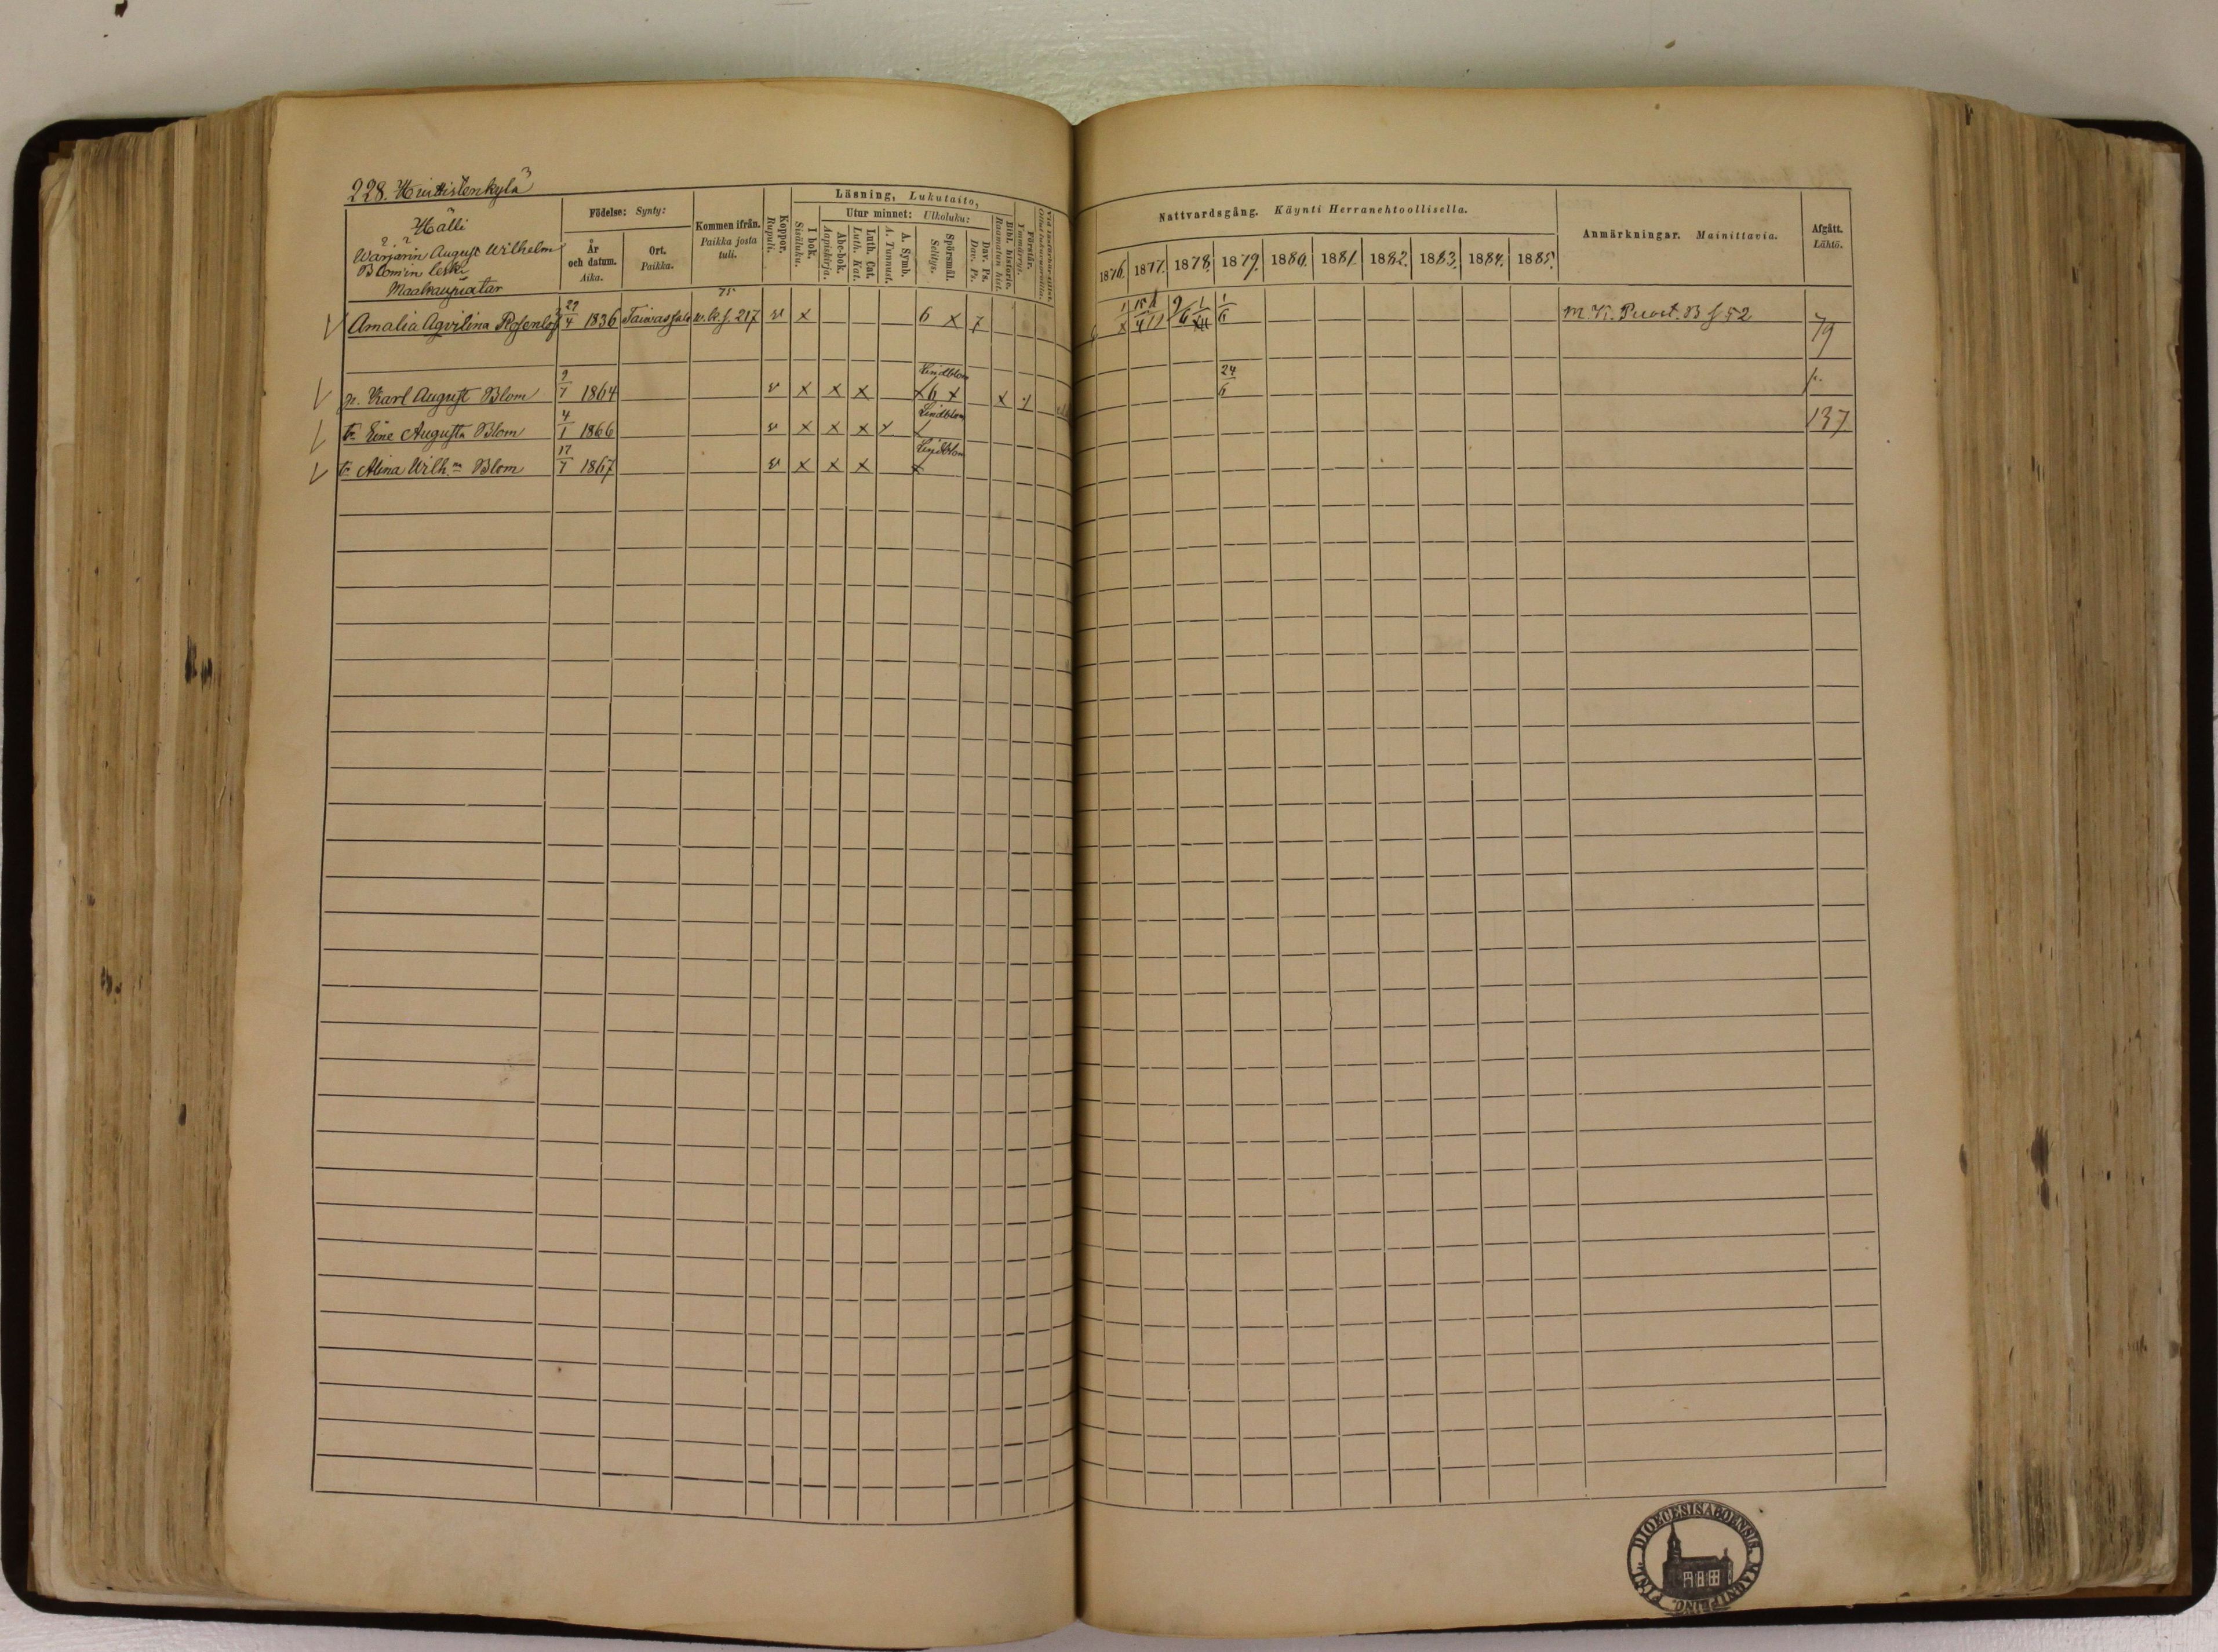 228. Huittistenkylä
Hälli
Wärjärin August Wilhelm
Blom'in leski
Maakaupiatar
Födelse: Synty:
År och datum. Aika.
Ort. Paikka.
Kommen ifrån. Paikka josta tuli.
Koppor. Rupuli.
Läsning, Lukutaito,
I bok. Sisäluku.
Utur minnet: Ulkoluku:
Abc-bok. Aapiskirja.
Luth. Cat. Luth. Kat.
A. Symb. A. Tunnust.
Spörsmål. Selitys.
Dav. Ps. Dav. Ps.
Bibl. historie. Raamatun hist.
Förstår. Ymmärrys.
Nattvardsgång. Käynti Herranehtoollisella.
1876. 1877. 1878. 1879. 1880. 1881. 1882. 1883. 1884. 1885.
Anmärkningar. Mainittavia.
Afgått. Lähtö.
Amalia Aqvilina Rosenlöf 29/4 1836 Taiwassalo 75 w. k. s. 217 v x 6 x 7 1/6 52 79
p. Karl August Blom 9/7 1864 v x x x Lindblom x 6 x x 24/6 p.
t. Eine Augusta Blom 4/1 1866 v x x x x Lindblom 137
t. Alina Wilh:na Blom 17/7 1867 v x x x Lindblom x
FINL. DIOECESIS ABOENSIS. MAGNI PRINC.